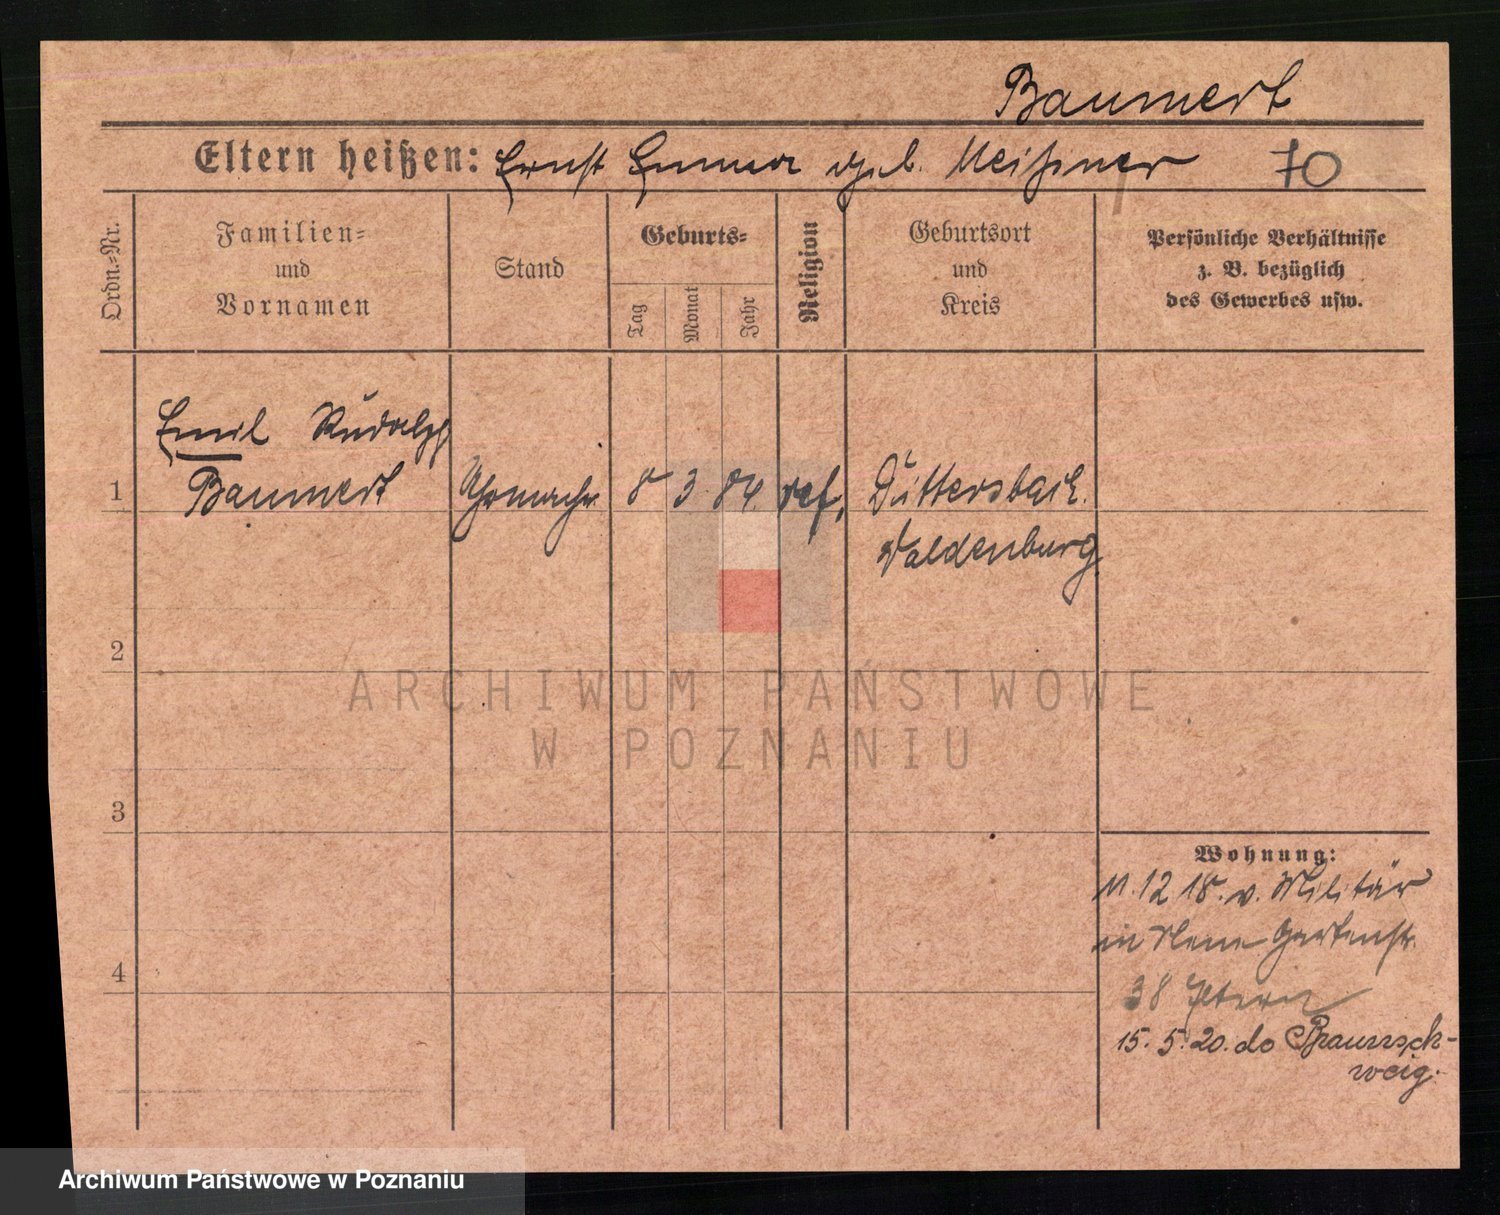 Baumert
Eltern heißen: Ernst Emma geb. Meißner 70
Ordn.-Nr.
Familien-
und
Vornamen
Stand
Geburts-
Tag
Monat
Jahr
Religion
Geburtsort
und
Kreis
Persönliche Verhältnisse
z. B. bezüglich
des Gewerbes usw.
Emil Rudolph
1 Baumert Uhrmacher 8 3 84. ref. Dittersbach.
Waldenburg
2
ARCHIWUM PAŃSTWOWE
W POZNANIU
3
Wohnung:
11. 12 18. v. Militär
in Neue Gartenstr.
4
38 Eltern
15. 5. 20. do Braunsch-
weig.
Archiwum Państwowe w Poznaniu